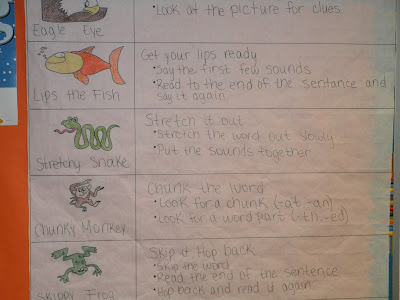 • Look at the picture for clues.
Eagle Eye
Get your lips ready
• Say the first few sounds
• Read to the end of the sentence and
say it again
Lips the Fish
Stretch it out
• Stretch the word out slowly
• Put the sounds together
Stretchy Snake
Chunk the Word
• Look for a chunk (-at -an)
• Look for a word part (-th, -ed)
Chunky Monkey
Skip it Hop back
• Skip the word
• Read the end of the sentence
• Hop back and read it again
Skippy Frog